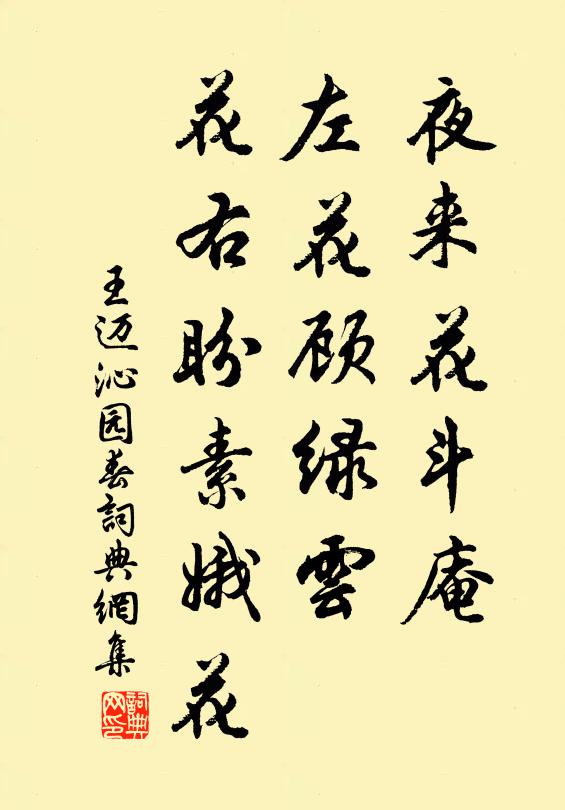 夜来花斗庵
左花顾绿雲
花右盼素娥花
王迈沁园春詞典網集
詞典网印